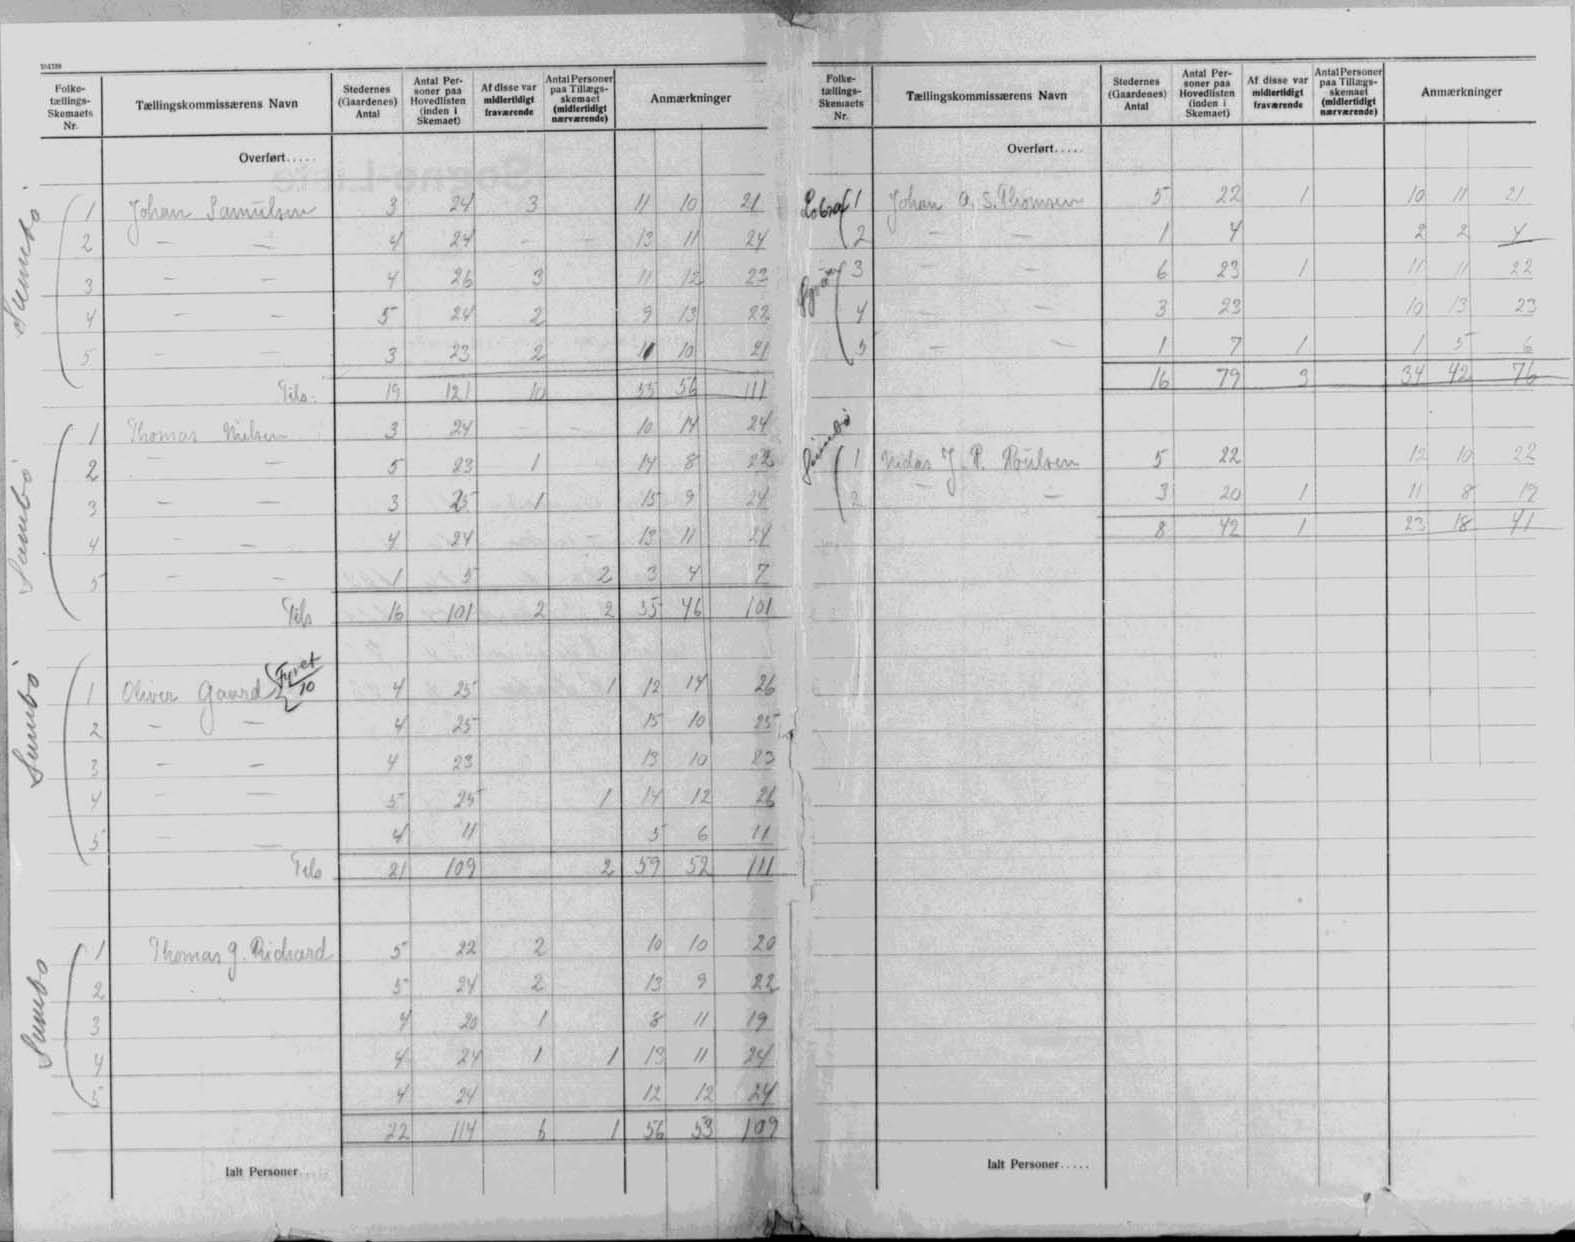 Folke-tællings-Skemaets Nr. Tællingskommissærens Navn Stedernes (Gaardenes) Antal Antal Personer paa Hovedlisten (inden i Skemaet) Af disse var midlertidigt fraværende Antal Personer paa Tillægs-skemaet (midlertidigt nærværende) Anmærkninger
Overført.....
Sumbö
1 Johan Samuelsen 3 24 3 11 10 21
2 — — 4 24 - - 13 11 24
3 — — 4 26 3 11 12 23
4 — — 5 24 2 9 13 22
5 — — 3 23 2 11 10 21
Tils. 19 121 10 55 56 111
Sumbö
1 Thomas Nielsen 3 24 - - 10 14 24
2 — — 5 23 1 14 8 22
3 — — 3 25 1 15 9 24
4 — — 4 24 13 11 24
5 — — 1 5 2 3 4 7
Tils 16 101 2 2 55 46 101
Sumbö
1 Oliver Gaard (Fyret 10) 4 25 1 12 14 26
2 — — 4 25 15 10 25
3 — — 4 23 13 10 23
4 — — 5 25 1 14 12 26
5 — — 4 11 5 6 11
Tils 21 109 2 59 52 111
Sumbö
1 Thomas J. Richard 5 22 2 10 10 20
2 5 24 2 13 9 22
3 4 20 1 8 11 19
4 4 24 1 1 13 11 24
5 4 24 12 12 24
22 114 6 1 56 53 109
Ialt Personer.....
Folke-tællings-Skemaets Nr. Tællingskommissærens Navn Stedernes (Gaardenes) Antal Antal Personer paa Hovedlisten (inden i Skemaet) Af disse var midlertidigt fraværende Antal Personer paa Tillægs-skemaet (midlertidigt nærværende) Anmærkninger
Overført.....
Lobra
1 Johan A. S. Thomsen 5 22 1 10 11 21
2 — — 1 4 2 2 4
3 — — 6 23 1 11 11 22
4 — — 3 23 10 13 23
5 — — 1 7 1 1 5 6
16 79 3 34 42 76
Sumbö
1 Nidas J. P. Poulsen 5 22 12 10 22
2 — — 3 20 1 11 8 19
8 42 1 23 18 41
Ialt Personer.....